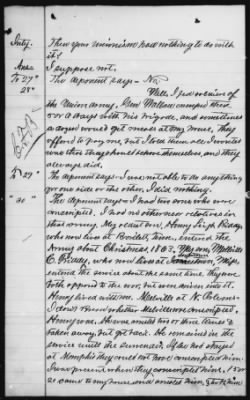 Inty. Then your unionism had nothing to do with
it?
Ans. I suppose not.
To 27" The deponent says - No.
28" Well, I fed a portion of
the Union army. Gen. camped there
5 or 6 days with his brigade, and sometimes
a would get meals at my house. They
offered to pay me, but I told them all I wanted
was that they should behave themselves, and they
always did.
To 29" The deponent says - I was not able to do anything
for one side or the other, I did nothing.
" 30 " The deponent says - I had two sons who were
conscripted. I had no other near relatives in
that army. My oldest son, Henry
who now lives at entered the
Army about Christmas 1863. My son,
C. who now lives at Miss.
entered the service about the same time. They were
both opposed to the war, but were forced into it.
Henry lived with me. Melville at N. Orleans.
I don't know whether Melville was conscripted,
Henry was. He was out two or three times &
taken away, but got back. He remained in the
service until the surrender. If he had stayed
at Memphis they could not have conscripted him.
I was present when they conscripted him. 15 or
20 came to my house and arrested him